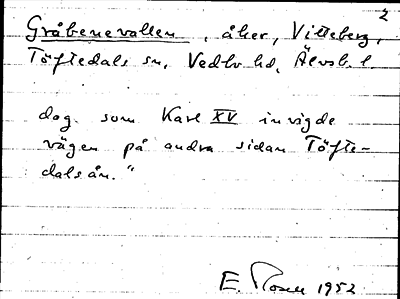 2
Gråbenevallen, åker, Vitteberg,
Töftedals sn, Vedbo hd, Älvsb. l.
dag som Karl XV invigde
vägen på andra sidan Töfte-
dalsån."
E. Rosen 1952